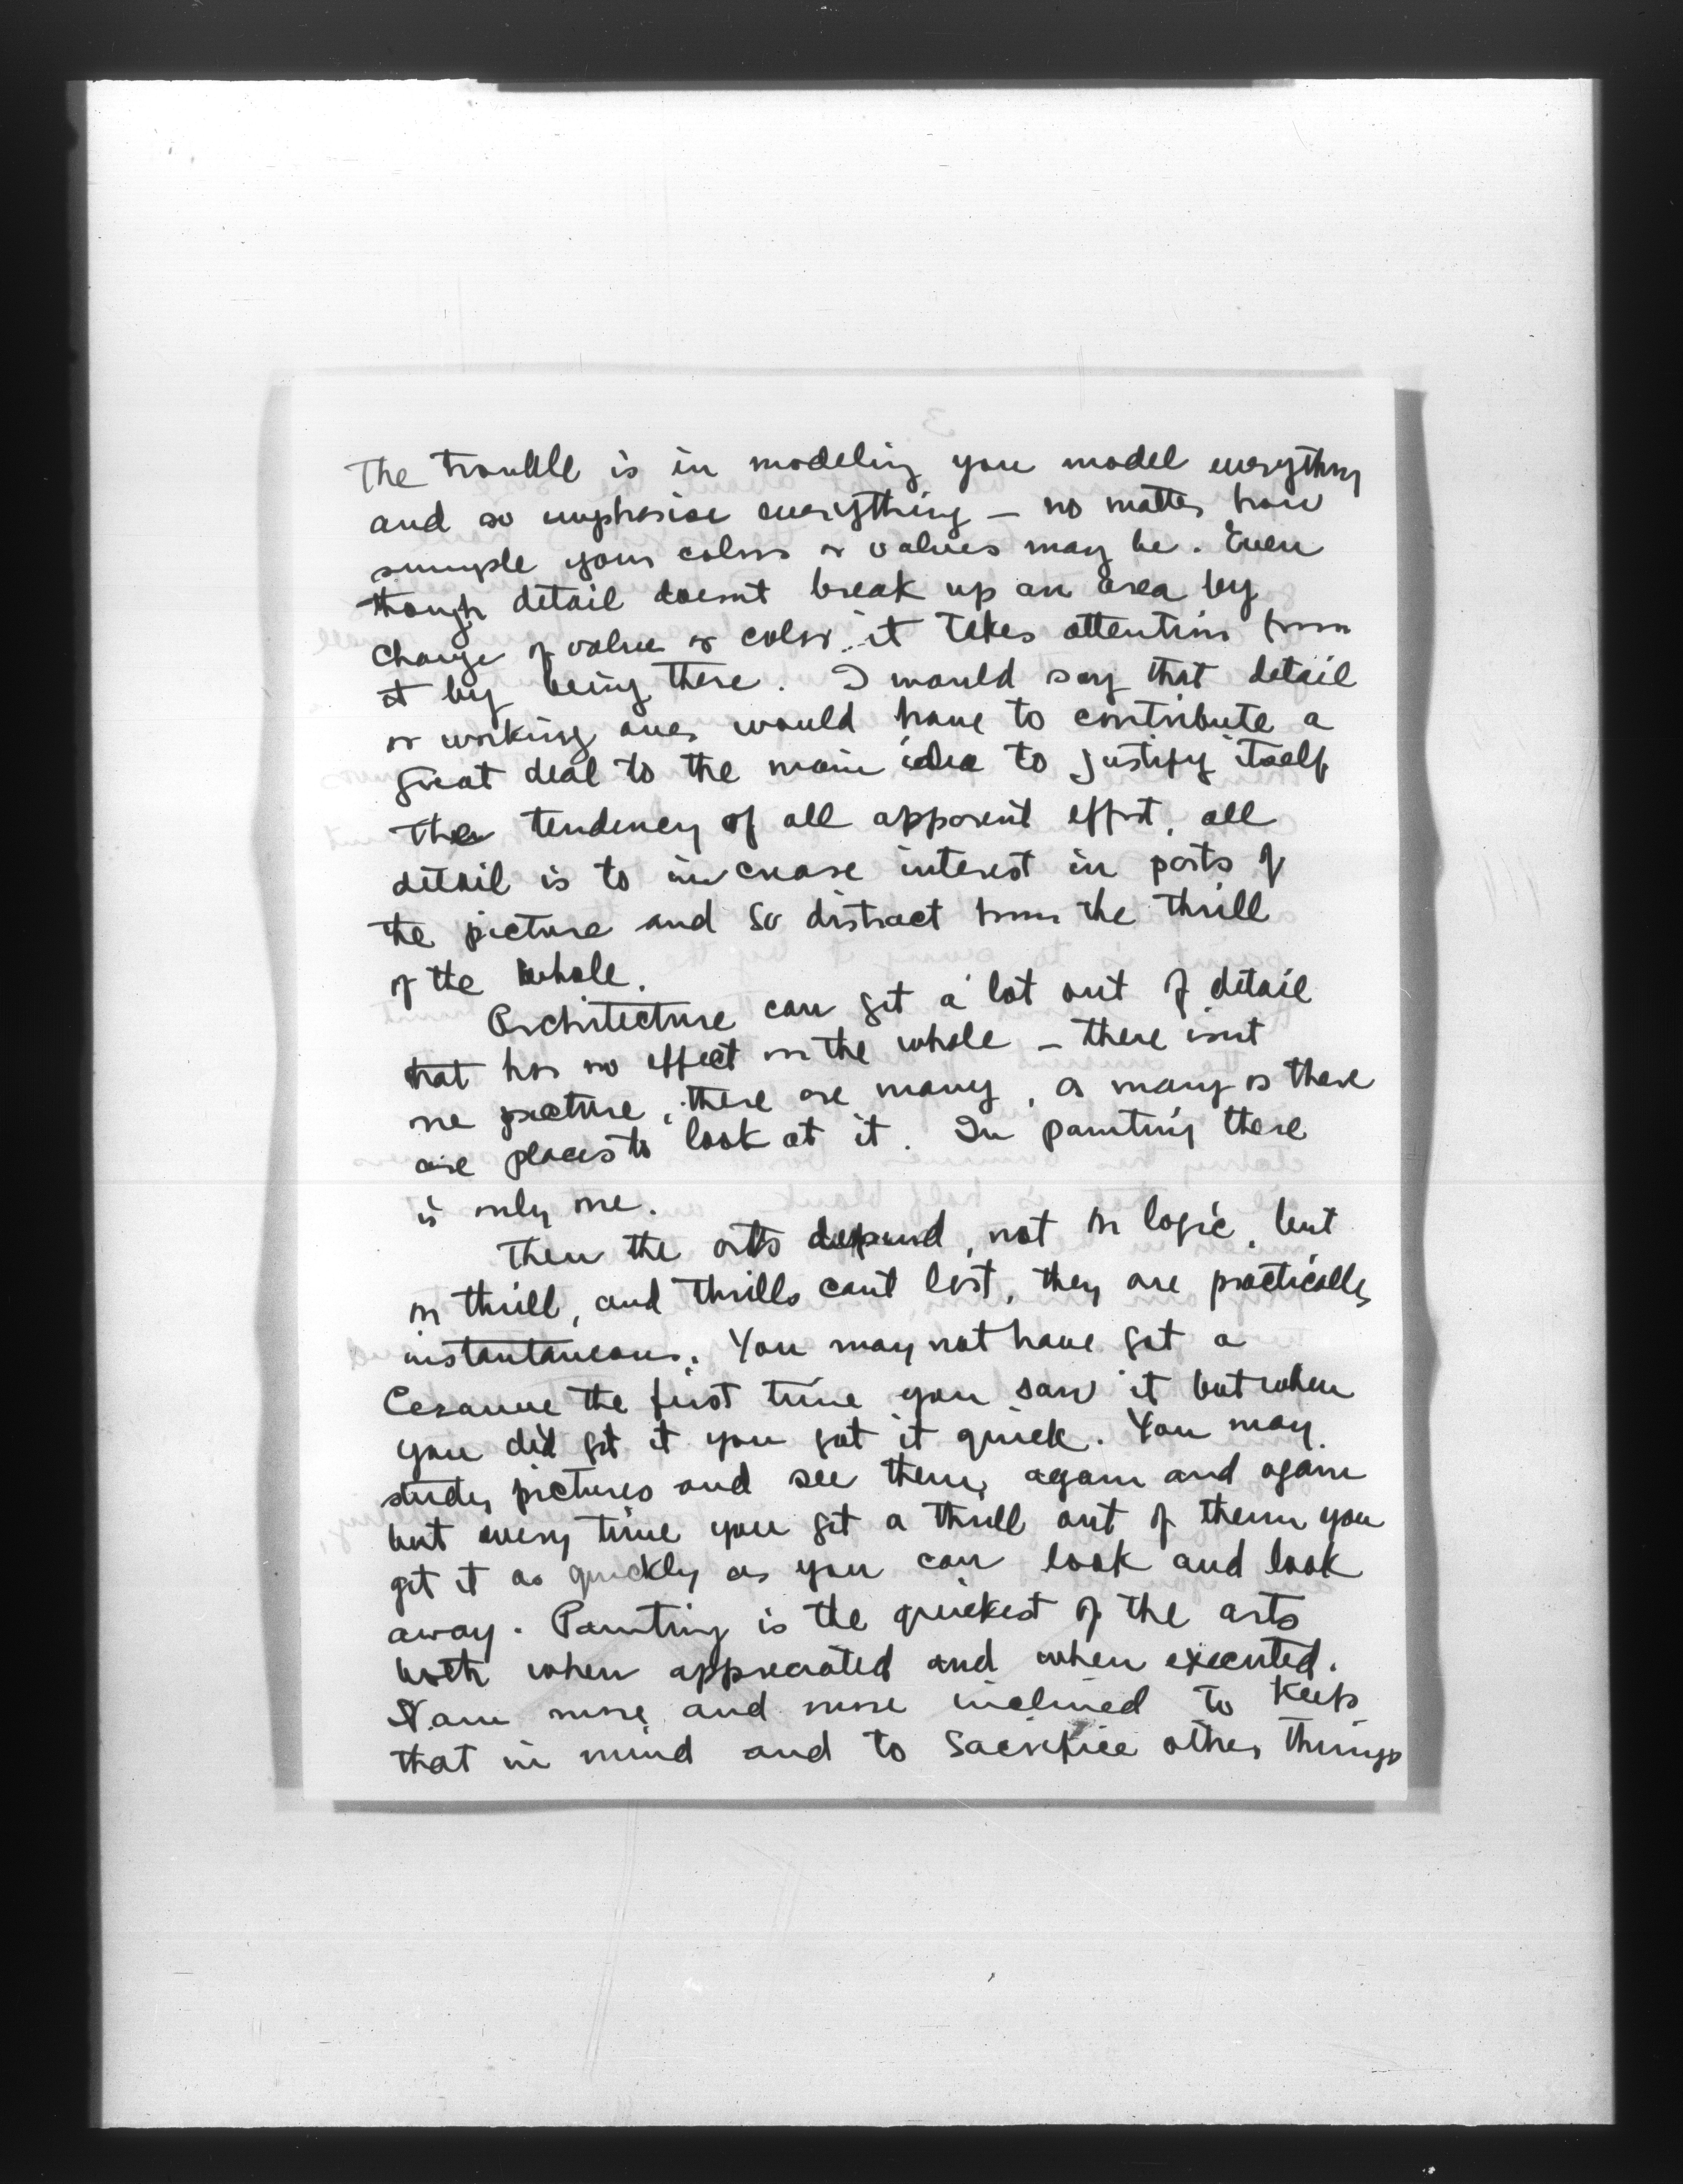 The trouble is in modeling you model everything
and so emphasise everything – no matter how
simple your colors or values may be. Even
though detail doesnt break up an area by
change of value or color it takes attention from
it by being there. I would say that detail
or working over would have to contribute a
great deal to the main idea to justify itself
The tendency of all apparent effort, all
detail is to increase interest in parts of
the picture and so distract from the thrill
of the whole.
Architecture can get a lot out of detail
that has no effect on the whole – there isnt
one picture, there are many, as many as there
are places to look at it. In painting there
is only one.
Then the arts depend, not on logic, but
on thrill, and thrills cant last, they are practically
instantaneous. You may not have got a
Cezanne the first time you saw it but when
you did get it you got it quick. You may
study pictures and see them again and again
but every time you get a thrill out of them you
get it as quickly as you can look and look
away. Painting is the quickest of the arts
both when appreciated and when executed.
I am more and more inclined to keep
that in mind and to sacrifice other things